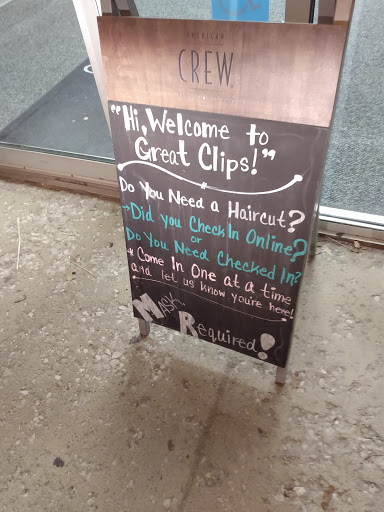 AMERICAN
CREW
"Hi, Welcome to
Great Clips!"
Do You Need a Haircut?
Did you Check In Online?
or
Do You Need Checked In?
* Come In One at a time
and let us know you're here!
Mask
Required!